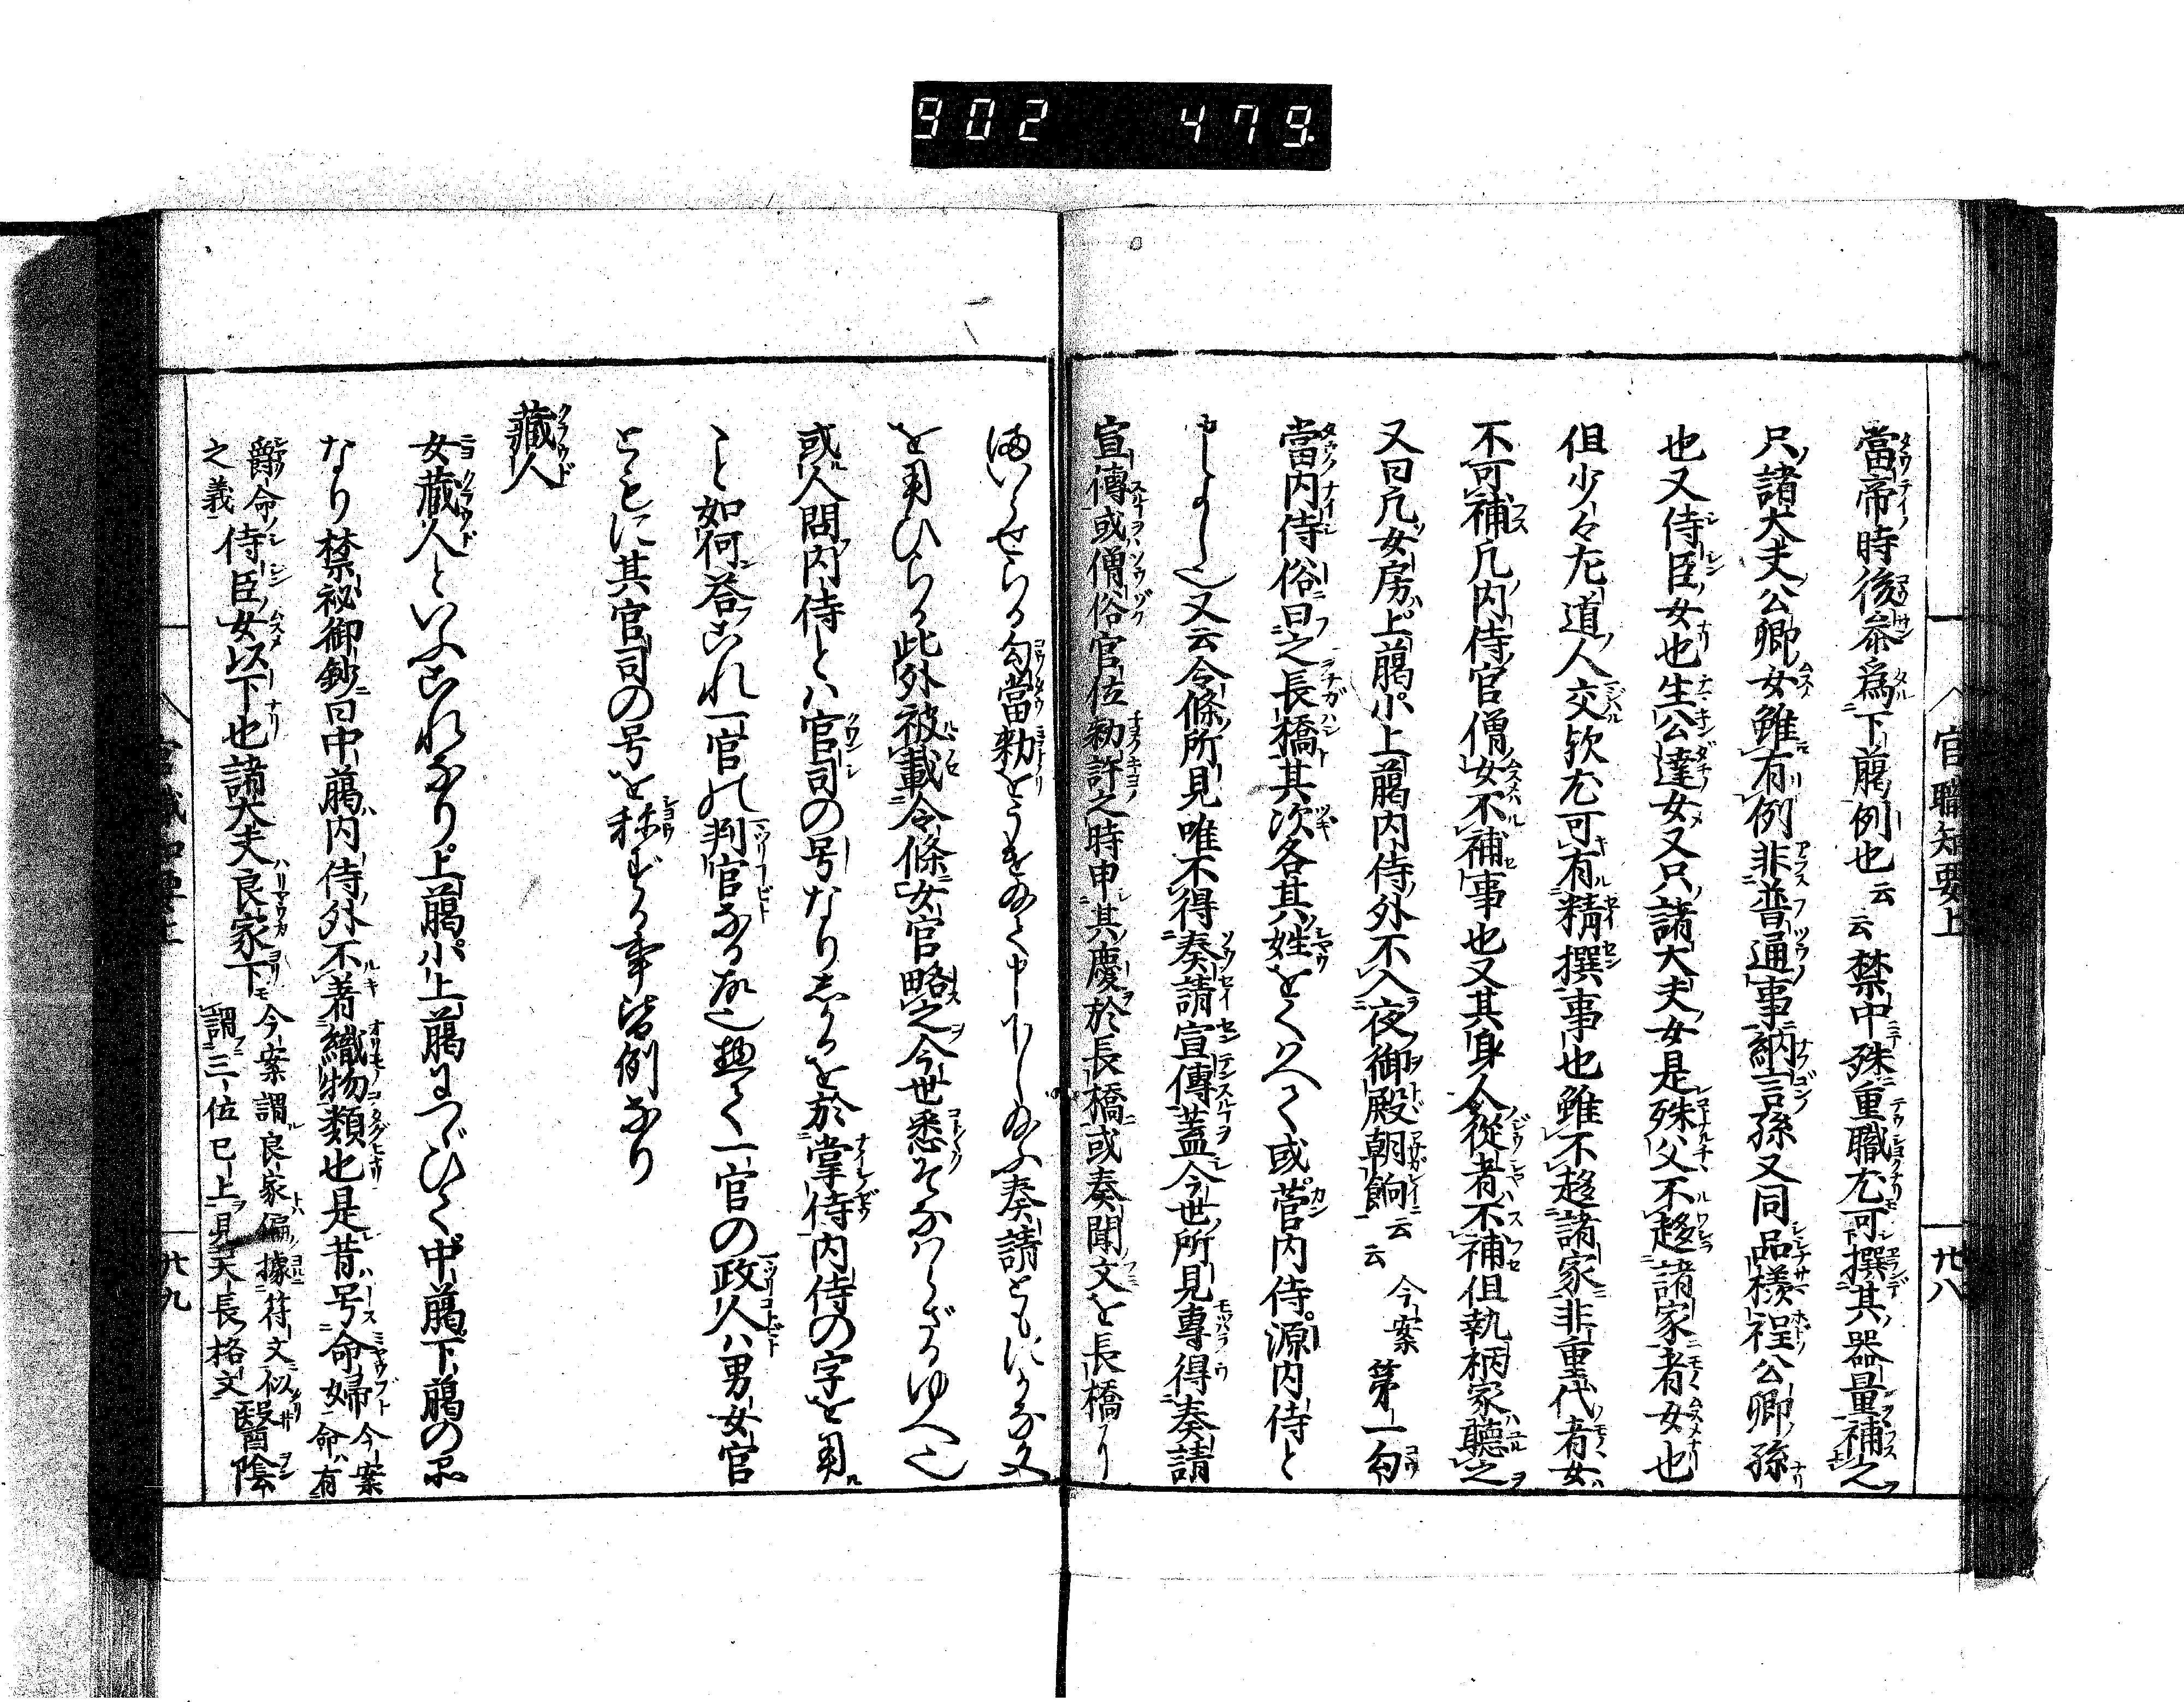 902 479
官職知要上
廿八
當帝時後參爲下﨟例也云云禁中殊重職尤可撰其器量補之
只諸大夫公卿女雖有例非普通事納言孫又同品樣程公卿孫
也又侍臣女也生公達女又只諸大夫女是殊父不趍諸家者女也
但少々尤道人交欤尤可有精撰事也雖不趍諸家非重代者女
不可補凡内侍官僧女不補事也又其身人從者不補但執柄家聽之
又曰凡女房上﨟小上﨟内侍外不入夜御殿朝餉云云 今案 第一勾
當内侍俗曰之長橋其次各其姓をくハへて或菅内侍源内侍と
せしよし也又云令條所見唯不得奏請宣傳蓋今世所見專得奏請
宣傳或僧俗官位勅許之時申其慶於長橋或奏聞文を長橋より
勾當勅をうけ給て申下し給ふ奏請ともにかな文
を用ひらる此外被載令條女官略之今世悉そなハらざるゆへ也
或人問内侍とハ官司の号なりしかるを於掌侍内侍の字を用
こと如何答これ一官の判官なる故也惣て一官の政人ハ男女官
ともに其官司の号を称ずる事皆例なり
藏人
女藏人といふこれなり上﨟小上﨟につゞひて中﨟下﨟の品
なり禁祕御鈔曰中﨟内侍外不着織物類也是昔号命婦 今案命有
爵命之義 侍臣女以下也諸大夫良家下 今案謂良家偏據符文似謂三位已上見天長格文 醫陰
廿九